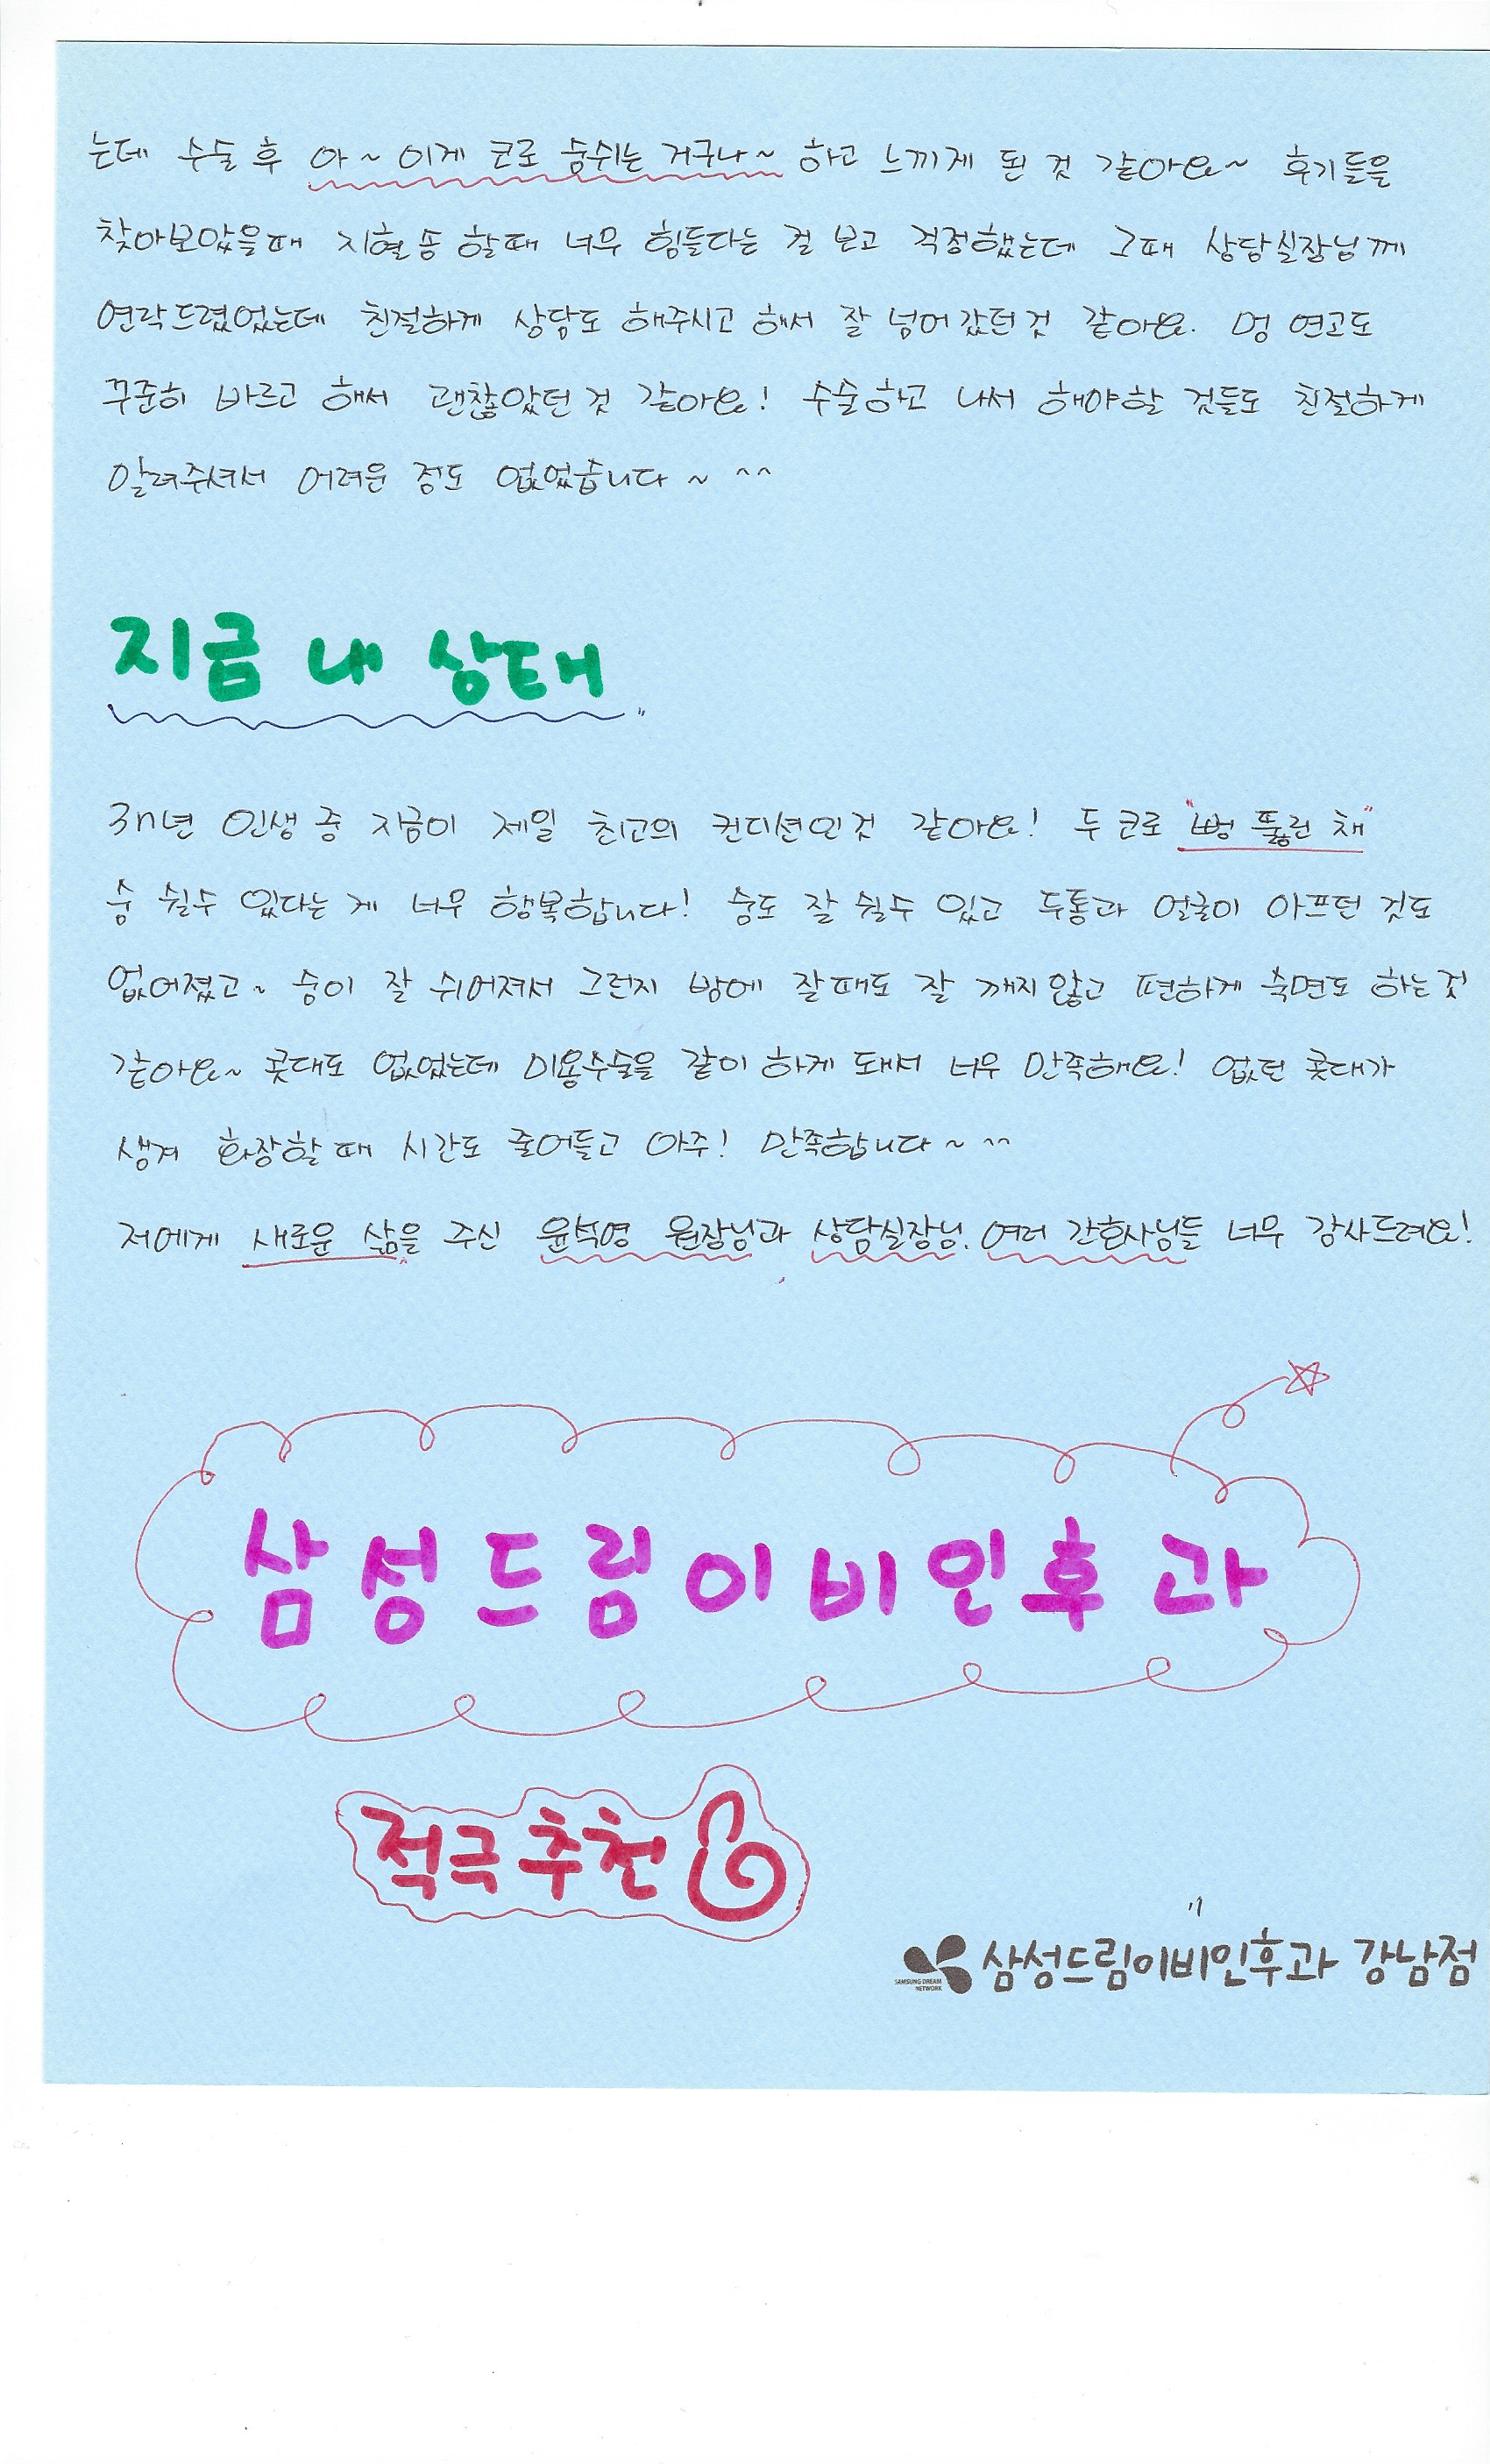 는데 수술 후 아~ 이게 코로 숨쉬는 거구나~ 하고 느끼게 된 것 같아요~ 후기들을
찾아보았을때 지혈솜 할때 너무 힘들다는 걸 보고 걱정했는데 그때 상담실장님께
연락드렸었는데 친절하게 상담도 해주시고 해서 잘 넘어갔던것 같아요. 멍 연고도
꾸준히 바르고 해서 괜찮았던 것 같아요! 수술하고 나서 해야할 것들도 친절하게
알려주셔서 어려운 점도 없었습니다~ ^^
지금 내 상태
3n년 인생 중 지금이 제일 최고의 컨디션인것 같아요! 두 코로 "뻥 뚫린 채"
숨 쉴수 있다는 게 너무 행복합니다! 숨도 잘 쉴수 있고 두통과 얼굴이 아프던 것도
없어졌고~ 숨이 잘 쉬어져서 그런지 밤에 잘때도 잘 깨지않고 편하게 숙면도 하는것
같아요~ 콧대도 없었는데 미용수술을 같이 하게 돼서 너무 만족해요! 없던 콧대가
생겨 화장할 때 시간도 줄어들고 아주! 만족합니다~ ^^
저에게 새로운 삶을 주신 윤석영 원장님과 상담실장님, 여러 간호사님들 너무 감사드려요!
삼성드림이비인후과
적극추천
SAMSUNG DREAM
NETWORK
삼성드림이비인후과 강남점